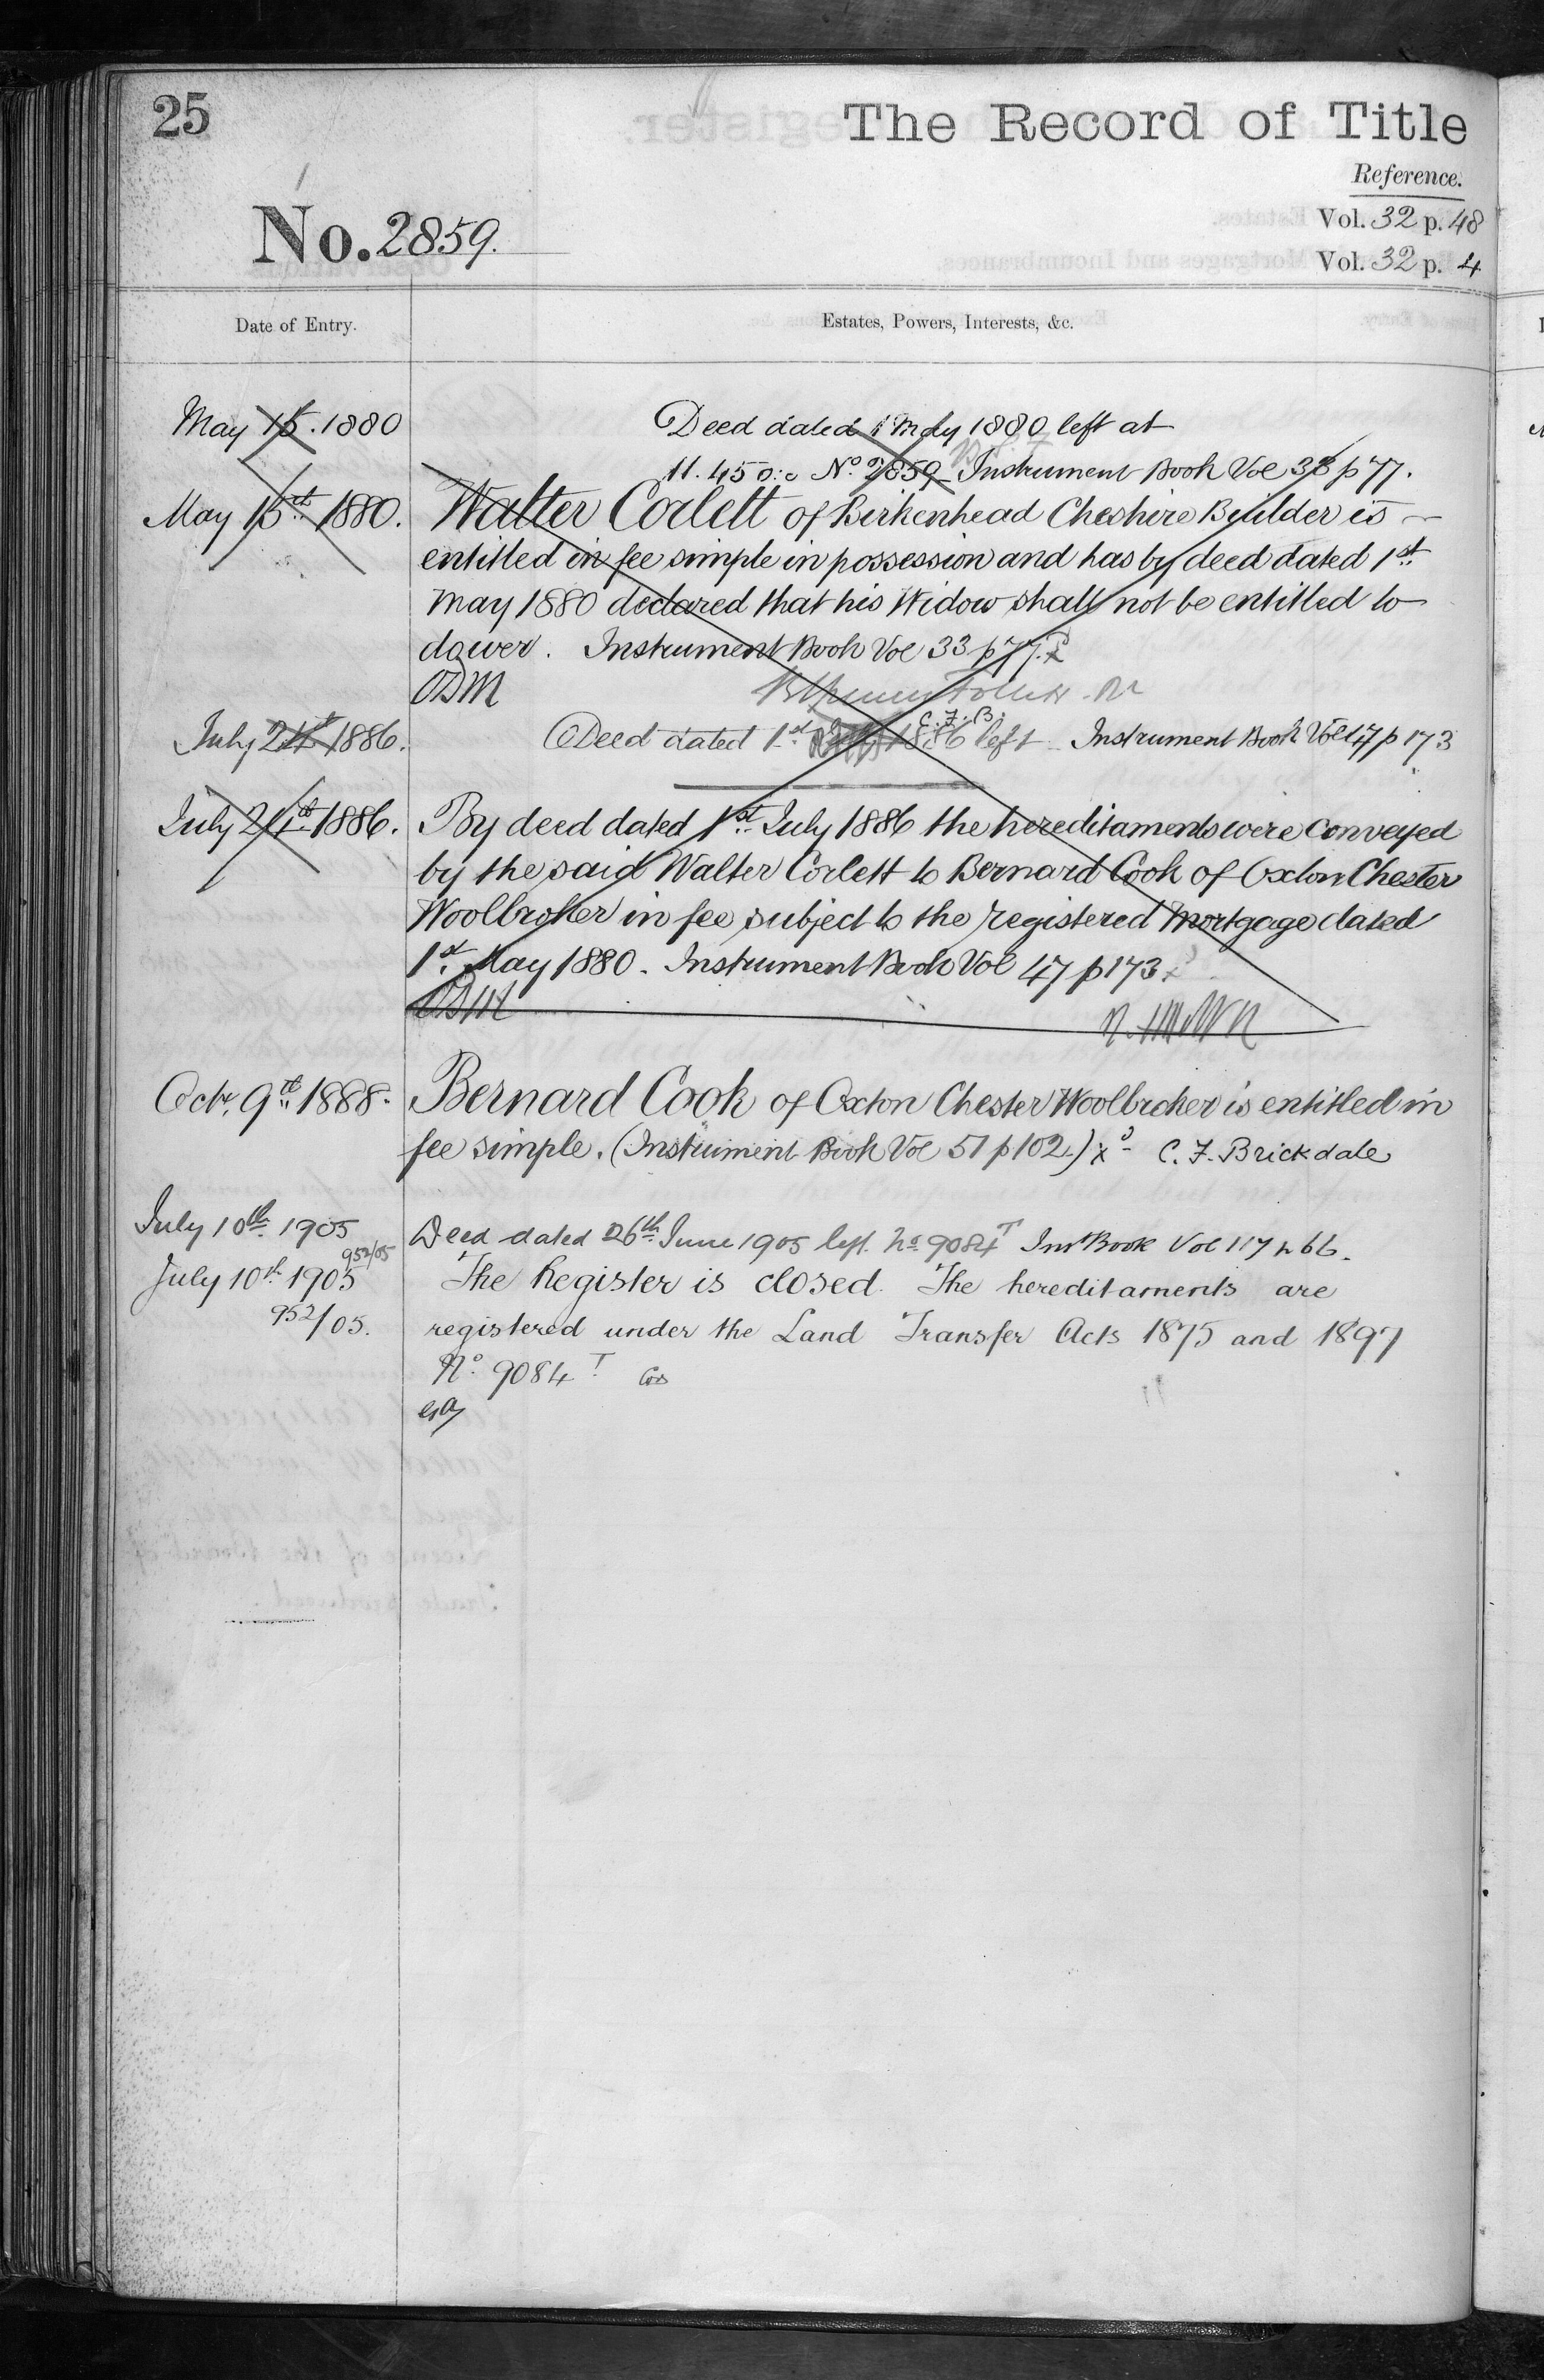 25
The Record of Title
Reference.
No. 2859.
Vol. 32 p. 48
Vol. 32 p. 4
Date of Entry.
Estates, Powers, Interests, &c.
May 15. 1880
Deed dated 1 May 1880 left at
11.45 o.c No. 2859 Instrument Book Vol 33 p 77.
May 15th 1880.
Walter Corlett of Birkenhead Cheshire Builder is
entitled in fee simple in possession and has by deed dated 1st
May 1880 declared that his Widow shall not be entitled to
dower. Instrument Book Vol 33 p 77.
ODM
C.F.B.
July 21st 1886.
Deed dated 1st 1886 left Instrument Book Vol 47 p 173
July 21st 1886.
By deed dated 1st July 1886 the hereditaments were conveyed
by the said Walter Corlett to Bernard Cook of Oxton Chester
Woolbroker in fee subject to the registered mortgage dated
1st May 1880. Instrument Book Vol 47 p 173
ODM
Octr. 9th 1888.
Bernard Cook of Oxton Chester Woolbroker is entitled in
fee simple. (Instrument Book Vol 51 p 102.) C. F. Brickdale
July 10th 1905
952/05
Deed dated 26th June 1905 left No 9084T Inst Book Vol 117 p 66.
July 10th 1905
952/05.
The Register is closed. The hereditaments are
registered under the Land Transfer Acts 1875 and 1897
No. 9084T